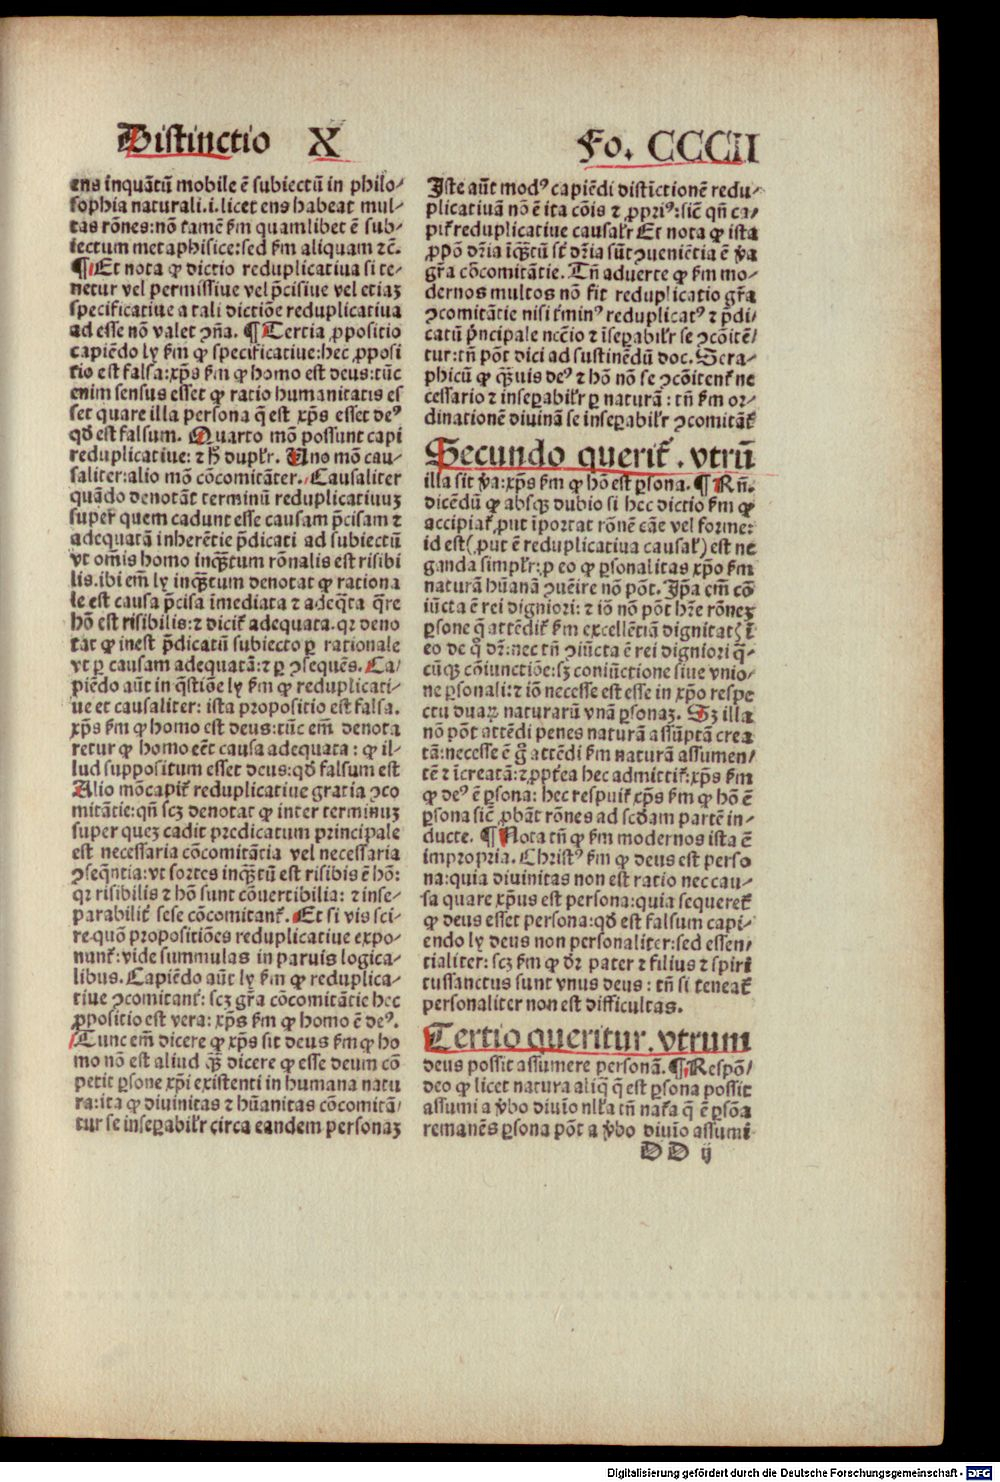 Distinctio X
Fo. CCCII
ens inquãtũ mobile ẽ subiectũ in philo⸗
sophia naturali.i.licet ens habeat mul⸗
tas rõnes:nõ tamẽ ẜm quamlibet ẽ sub⸗
iectum metaphisice:sed ẜm aliquam ⁊c̃.
¶ Et nota ꝙ dictio reduplicatiua si te⸗
netur vel permissiue vel p̃cisiue vel etiaꝫ
specificatiue a tali dictiõe reduplicatiua
ad esse nõ valet ꝯñа. ¶ Tertia ꝓpositio
capiẽdo ly ẜm ꝙ specificatiue:hec ꝓposi
tio est falsa:xp̃s ẜm ꝙ homo est deus:tũc
enim sensus esset ꝙ ratio humanitatis es
set quare illa persona q̃ est xp̃s esset deꝰ
qḋ est falsum. Quarto mõ possunt capi
reduplicatiue: ⁊ ɧ̃ duplr̃. Uno mõ cau⸗
saliter:alio mõ cõcomitãter. Causaliter
quãdo denotãt terminũ reduplicatiuuꝫ
super quem cadunt esse causam p̃cisam ⁊
adequatã inherẽtie p̃dicati ad subiectũ
vt om̃is homo inqᷓtum rõnalis est risibi
lis.ibi em̃ ly inqᷓtum denotat ꝙ rationa
le est causa p̃cisa ĩmediata ⁊ adeq̃ta q̃re
hõ est risibilis:⁊ dicit᷑ adequata.qꝛ deno
tat ꝙ inest p̃dicatũ subiecto ꝑ rationale
vt ꝑ causam adequatã:⁊ ꝑ ꝯsequẽs. Ca⸗
piẽdo aũt in q̃stiõe ly ẜm ꝙ reduplicati⸗
ue et causaliter: ista propositio est falsa.
xp̃s ẜm ꝙ homo est deus:tũc em̃ denota
retur ꝙ homo eẽt causa adequata: ꝙ il⸗
lud suppositum esset deus:qḋ falsum est
Alio mõ capit᷑ reduplicatiue gratia ꝯco
mitãtie:qñ scꝫ denotat ꝙ inter terminuꝫ
super queꝫ cadit predicatum principale
est necessaria cõcomitãtia vel necessaria
ꝯseq̃ntia:vt sortes inqᷓtũ est risibis ẽ hõ:
qꝛ risibilis ⁊ hõ sunt cõuertibilia: ⁊ inse⸗
parabilit᷑ sese cõcomitant᷑. Et si vis sci⸗
re quõ propositiões reduplicatiue expo⸗
nunt᷑:vide summulas in paruis logica⸗
libus. Capiẽdo aũt ly ẜm ꝙ reduplica⸗
tiue ꝯcomitant᷑: scꝫ gr̃a cõcomitãtie hec
ꝓpositio est vera: xp̃s ẜm ꝙ homo ẽ deꝰ.
Tunc em̃ dicere ꝙ xp̃s sit deus ẜm ꝙ ho
mo nõ est aliud qᷓ dicere ꝙ esse deum cõ
petit ꝑsone xp̃i existenti in humana natu
ra:ita ꝙ diuinitas ⁊ hũanitas cõcomitã⸗
tur se inseꝑabilr̃ circa eandem personaꝫ
Iste aũt modꝰ capiẽdi distictionẽ redu⸗
plicatiuã nõ ẽ ita cõis ⁊ ꝓpriꝰ:sic̃ qñ ca⸗
pit᷑ reduplicatiue causalr̃ Et nota ꝙ ista
ꝓpõ dr̃ia ĩqᷓtũ st᷑ dr̃ia sũt ꝯueniẽtia ẽ ṽa
gr̃a cõcomitãtie. Tñ aduerte ꝙ ẜm mo⸗
dernos multos nõ fit reduplicatio gr̃a
ꝯcomitãtie nisi t᷑minꝰ reduplicatꝰ ⁊ p̃di⸗
catũ p̃ncipale nccĩo ⁊ ĩseꝑabilr̃ se ꝯcõitẽ⸗
tur:tñ põt dici ad sustinẽdũ doc. Sera⸗
phicũ ꝙ qᷓuis deꝰ ⁊ hõ nõ se ꝯcõitent᷑ ne
cessario ⁊ inseꝑabilr̃ ꝑ naturã: tñ ẜm or⸗
dinationẽ diuinã se inseꝑabilr̃ ꝯcomitãt᷑
Secundo querit᷑. vtrũ
illa sit ṽa:xp̃s ẜm ꝙ hõ est ꝑsona. ¶ Rñ.
dicẽdũ ꝙ absqꝫ dubio si hec dictio ẜm ꝙ
accipiat᷑ ꝓut ĩportat rõnẽ cãe vel forme:
id est(ꝓut ẽ reduplicatiua causal᷑) est ne
ganda simplr̃:ꝑ eo ꝙ personalitas xp̃o ẜm
naturã hũanã ꝯuẽire nõ põt. Ip̃a em̃ cõ
iũcta ẽ rei digniori: ⁊ iõ nõ põt hr̃e rõneꝫ
ꝑsone q̃ attẽdit᷑ ẜm excellẽtiã dignitatꝭ ĩ
eo de q̊ dr̃:nec tñ ꝯiũcta ẽ rei digniori q̃⸗
cũqꝫ cõiunctiõe:sꝫ coniũctione siue vnio⸗
ne ꝑsonali:⁊ iõ necesse est esse in xp̃o respe
ctu duaꝝ naturarũ vnã ꝑsonaꝫ. Sꝫ illa
nõ põt attẽdi penes naturã assũptã crea
tã:necesse ẽ g̊ attẽdi ẜm naturã assumen⸗
tẽ ⁊ ĩcreatã:⁊ ꝓpt᷑ea hec admittit᷑:xp̃s ẜm
ꝙ deꝰ ẽ ꝑsona: hec respuit᷑ xp̃s ẜm ꝙ hõ ẽ
ꝑsona sic̃ ꝓbãt rõnes ad scḋam partẽ in⸗
ducte. ¶ Nota tñ ꝙ ẜm modernos ista ẽ
impropria. Christꝰ ẜm ꝙ deus est perso
na:quia diuinitas non est ratio nec cau⸗
sa quare xp̃us est persona:quia sequeret᷑
ꝙ deus esset persona:qḋ est falsum capi⸗
endo ly deus non personaliter:sed essen⸗
tialiter: scꝫ ẜm ꝙ dr̃ pater ⁊ filius ⁊ spiri
tussanctus sunt vnus deus: tñ si teneat᷑
personaliter non est difficultas.
Tertio queritur. vtrum
deus possit assumere personã. ¶ Respõ⸗
deo ꝙ licet natura aliq̃ q̃ est ꝑsona possit
assumi a ṽbo diuĩo nll̃a tñ nat᷑a q̃ ẽ ꝑsõa
remanẽs ꝑsona põt a ṽbo diuĩo assumi
DD ij
Digitalisierung gefördert durch die Deutsche Forschungsgemeinschaft - DFG